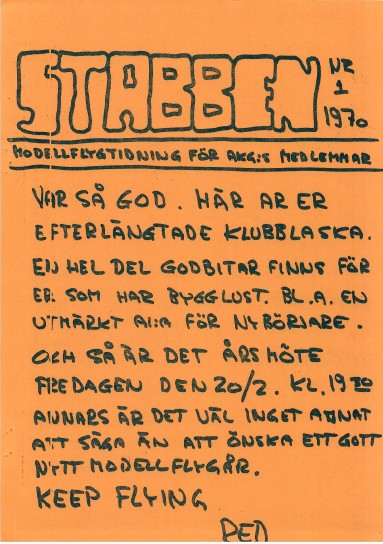 STABBEN
NR
1
1970
MODELLFLYGTIDNING FÖR AKG:S MEDLEMMAR
VAR SÅ GOD. HÄR ÄR ER
EFTERLÄNGTADE KLUBBLASKA.
EN HEL DEL GODBITAR FINNS FÖR
ER SOM HAR BYGGLUST. BL.A. EN
UTMÄRKT A1:A FÖR NYBÖRJARE.
OCH SÅ ÄR DET ÅRSMÖTE
FREDAGEN DEN 20/2. KL. 19
ANNARS ÄR DET VÄL INGET ANNAT
ATT SÄGA ÄN ATT ÖNSKA ETT GOTT
NYTT MODELLFLYGÅR.
KEEP FLYING